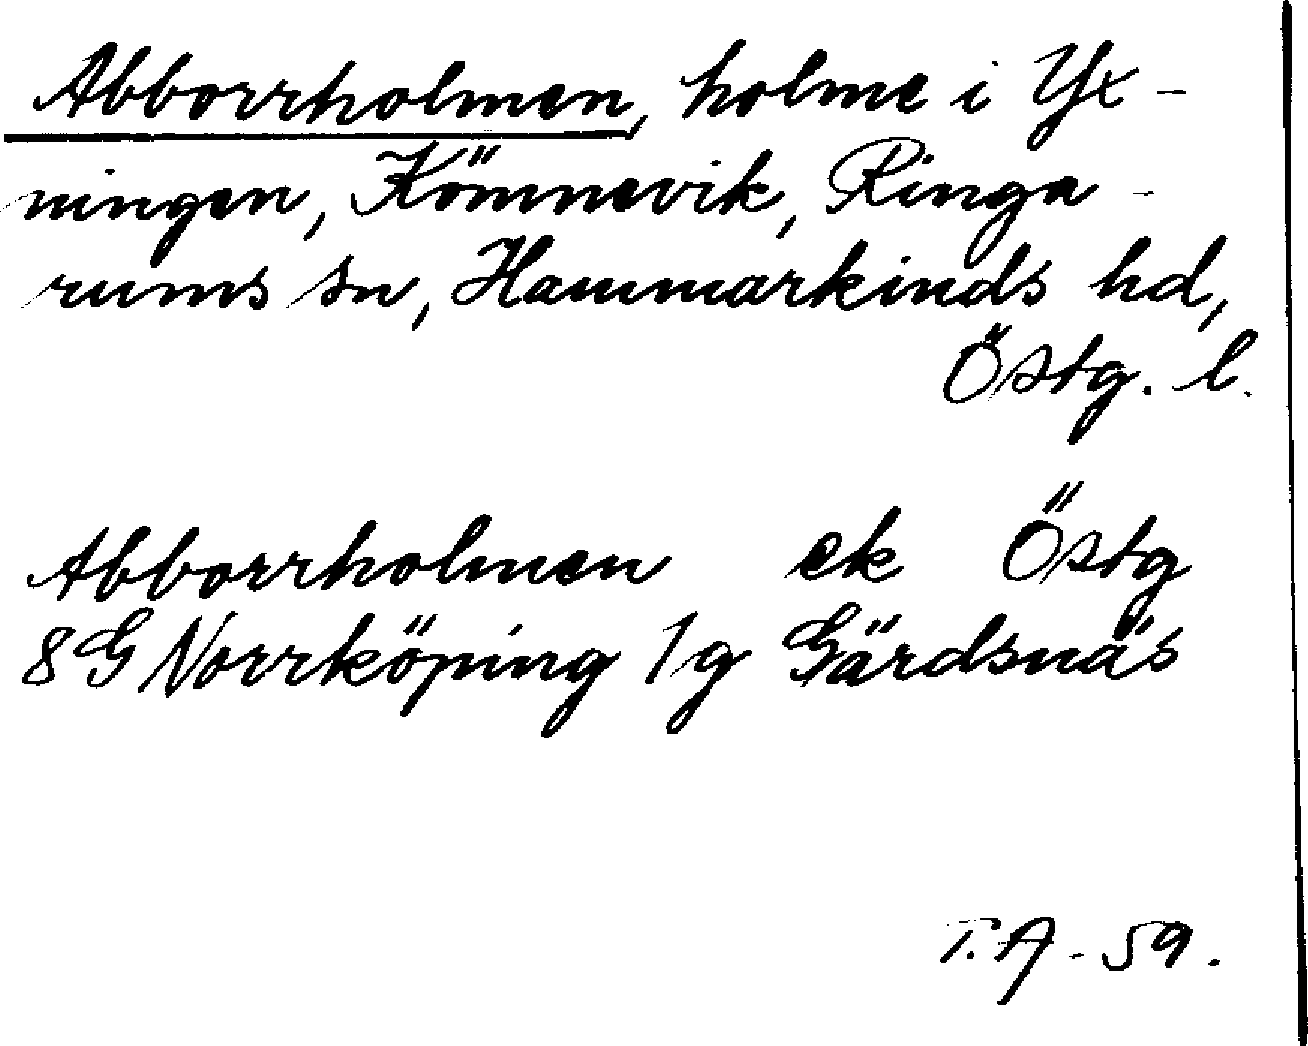 Abborrholmen, holme i Yx-
ningen, Kömnevik, Ringa-
rums sn, Hammarkinds hd,
Östg. l.
Abborrholmen ek Östg
8G Norrköping 1g Gärdsnäs
T.A-59.